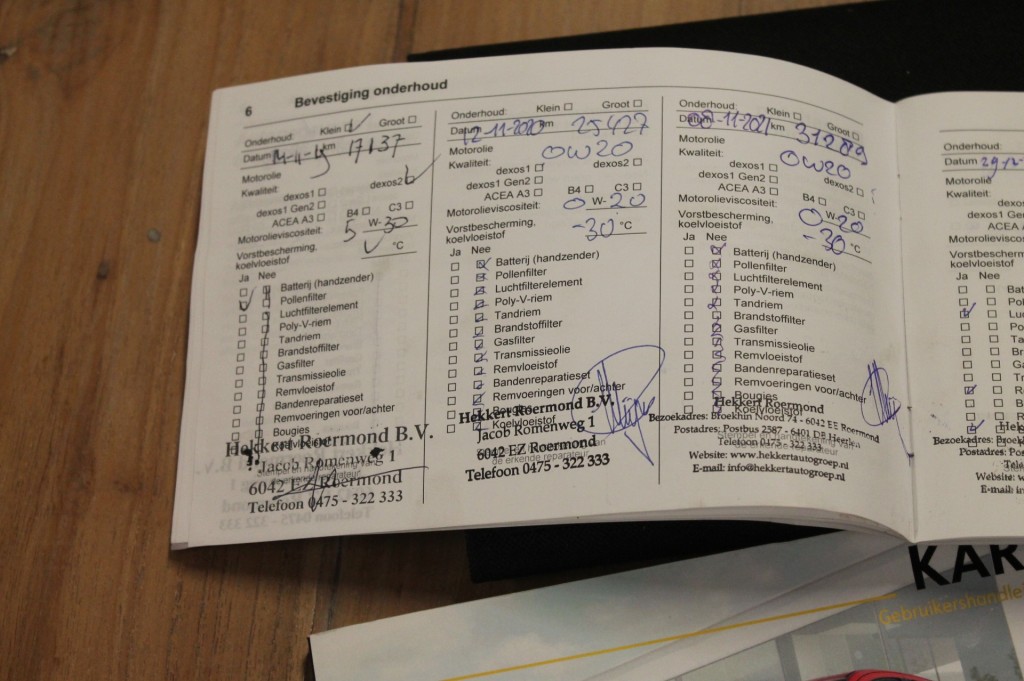 6 Bevestiging onderhoud
Onderhoud: Klein Groot
Datum km 17137
Motorolie
Kwaliteit:
dexos1 dexos2
dexos1 Gen2
ACEA A3 B4 C3
Motorolieviscositeit: 5 W-30
Vorstbescherming,
koelvloeistof °C
Ja Nee
Batterij (handzender)
Pollenfilter
Luchtfilterelement
Poly-V-riem
Tandriem
Brandstoffilter
Gasfilter
Transmissieolie
Remvloeistof
Bandenreparatieset
Remvoeringen voor/achter
Bougies
Koelvloeistof
Hekkert Roermond B.V.
Jacob Romenweg 1
6042 EZ Roermond
Telefoon 0475 - 322 333
Onderhoud: Klein Groot
Datum 12-11-2020 km 25427
Motorolie 0W20
Kwaliteit:
dexos1 dexos2
dexos1 Gen2
ACEA A3 B4 C3
Motorolieviscositeit: 0 W-20
Vorstbescherming,
koelvloeistof -30 °C
Ja Nee
Batterij (handzender)
Pollenfilter
Luchtfilterelement
Poly-V-riem
Tandriem
Brandstoffilter
Gasfilter
Transmissieolie
Remvloeistof
Bandenreparatieset
Remvoeringen voor/achter
Bougies
Koelvloeistof
Hekkert Roermond B.V.
Jacob Romenweg 1
6042 EZ Roermond
de erkende reparateur
Telefoon 0475 - 322 333
Onderhoud: Klein Groot
Datum 08-11-2021 km 31289
Motorolie 0W20
Kwaliteit:
dexos1 dexos2
dexos1 Gen2
ACEA A3 B4 C3
Motorolieviscositeit: 0-20
Vorstbescherming,
koelvloeistof -30 °C
Ja Nee
Batterij (handzender)
Pollenfilter
Luchtfilterelement
Poly-V-riem
Tandriem
Brandstoffilter
Gasfilter
Transmissieolie
Remvloeistof
Bandenreparatieset
Remvoeringen voor/achter
Bougies
Koelvloeistof
Hekkert Roermond
Bezoekadres: Broekhin Noord 74 - 6042 EE Roermond
Postadres: Postbus 2587 - 6401 DB Heerlen
Telefoon 0475 - 322 333
Website: www.hekkertautogroep.nl
E-mail: info@hekkertautogroep.nl
Onderhoud:
Datum 29-12-
Motorolie
Kwaliteit:
dexos1
dexos1 Gen
ACEA A
Motorolieviscos
Vorstbescherming,
koelvloeistof
Ja Nee
Ba
Po
Lu
Po
Ta
Br
Ga
Tra
Re
Ba
Re
Bo
Hek
Bezoekadres: Broekh
Postadres: Pos
Tele
Website: w
E-mail: in
KAR
Gebruikershandle